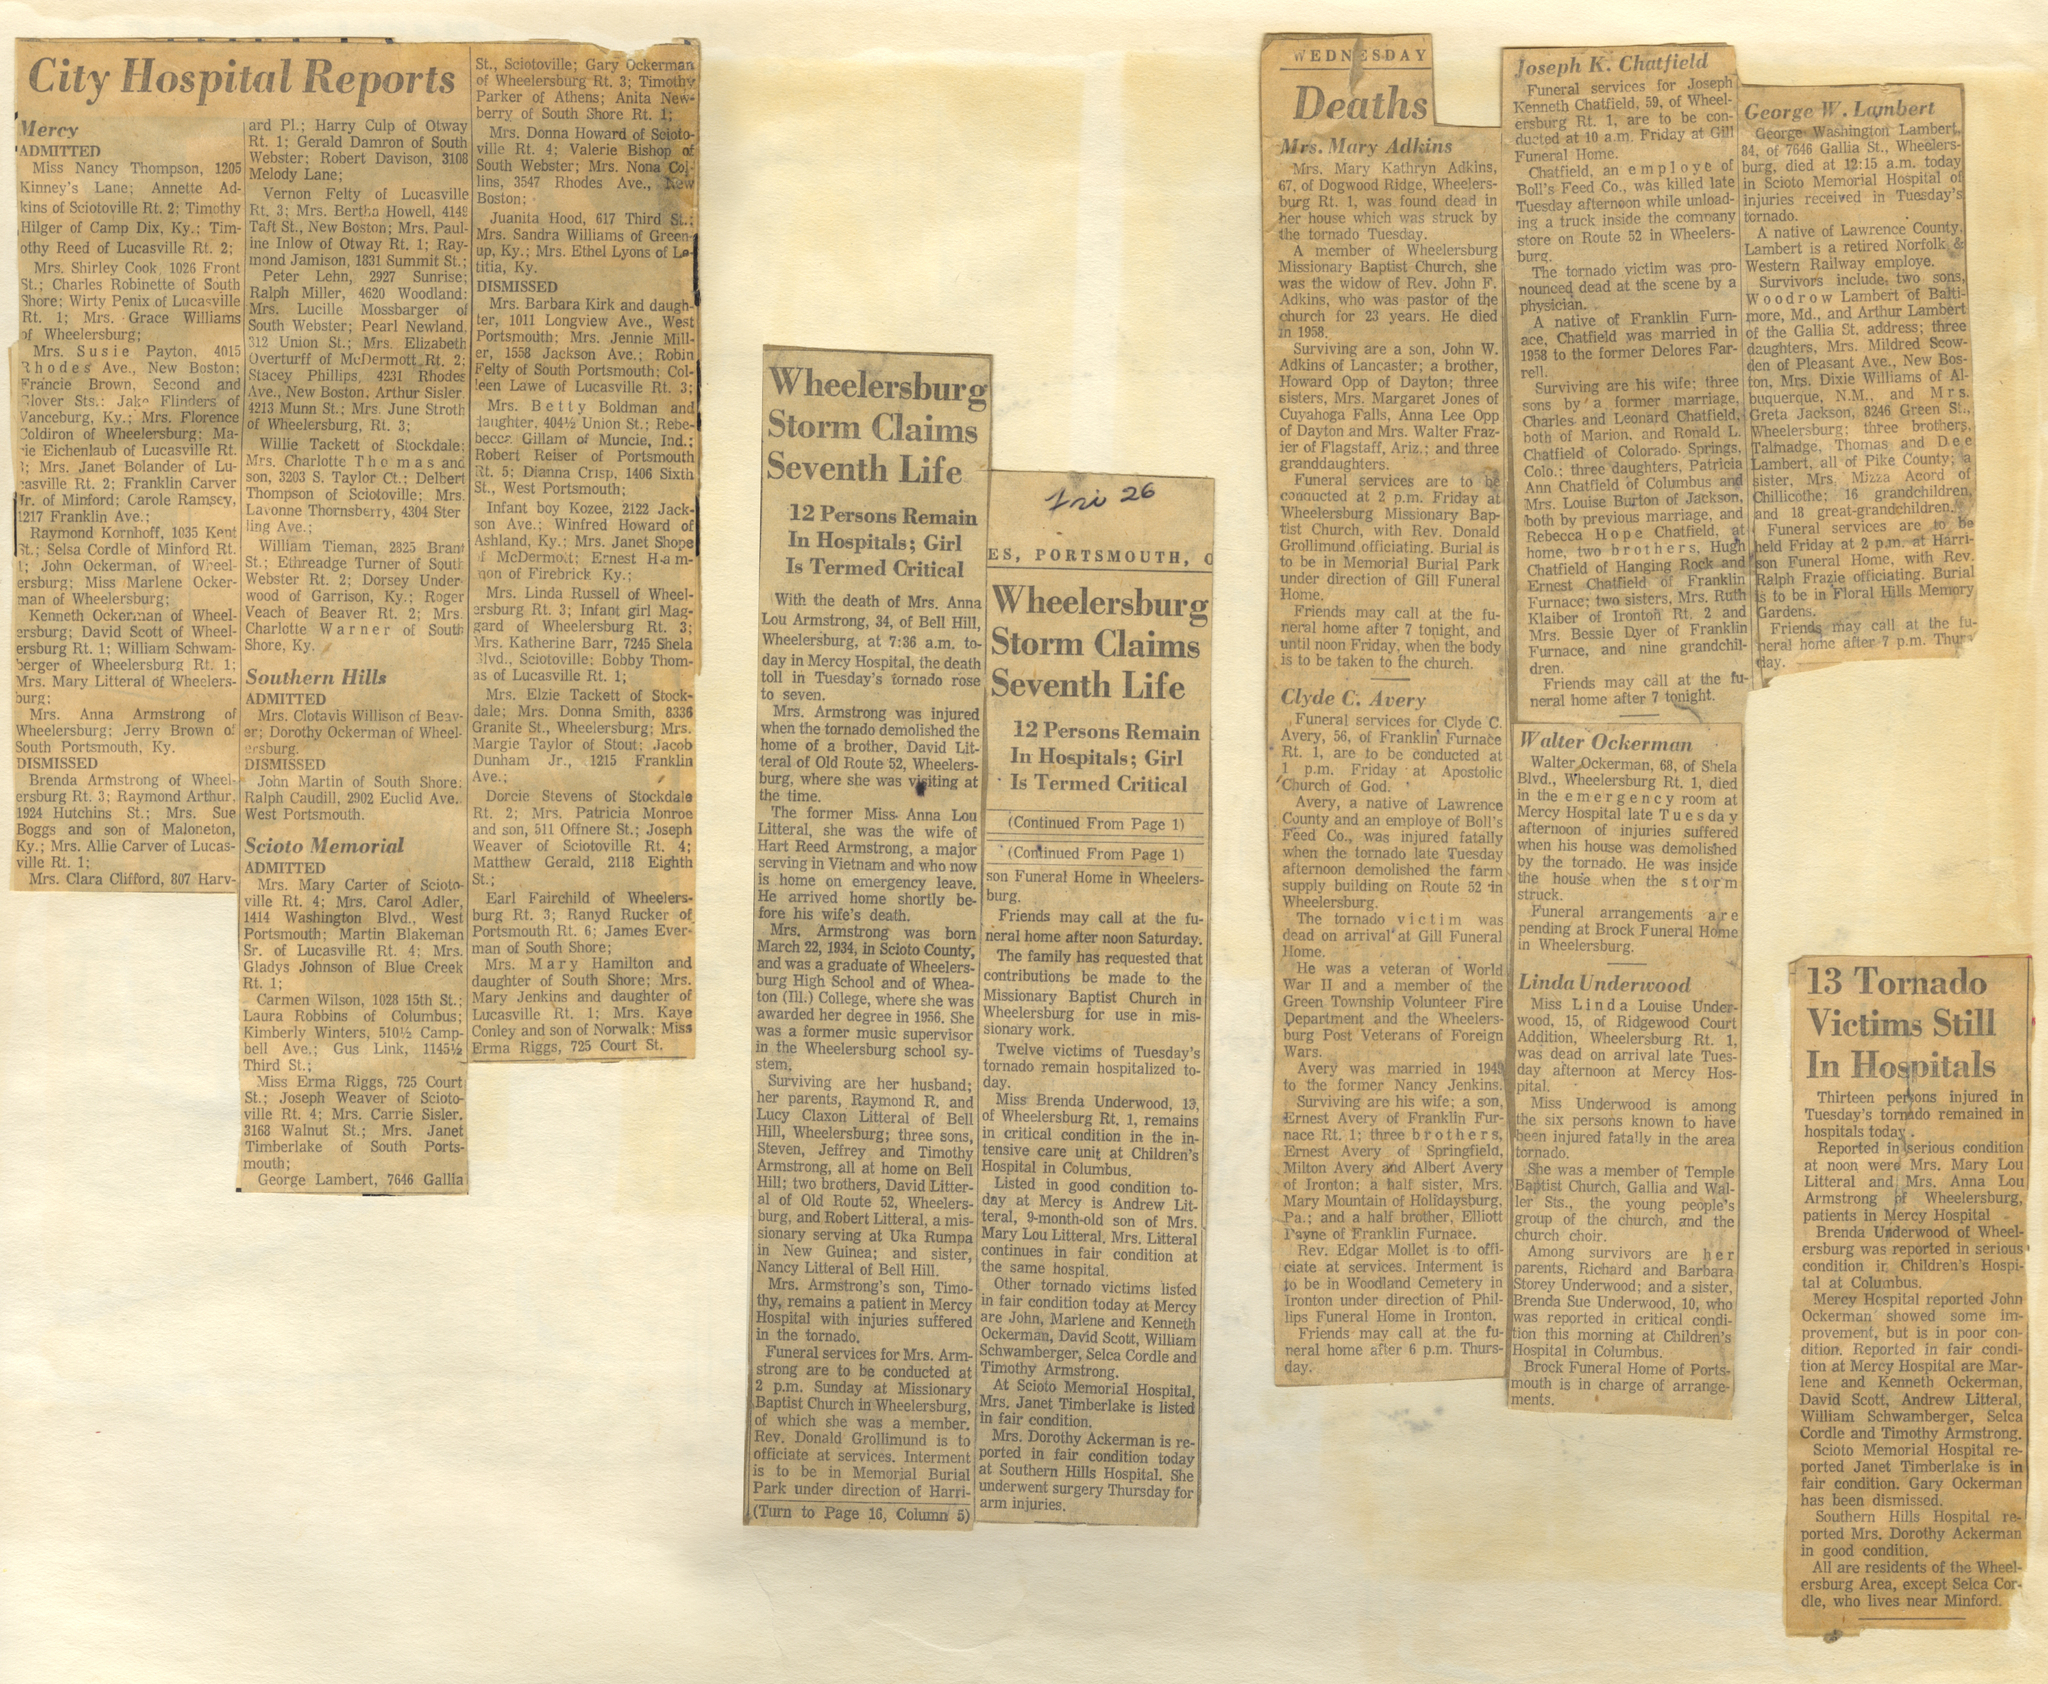 City Hospital Reports
Mercy
ADMITTED
Miss Nancy Thompson, 1205
Kinney's Lane; Annette Ad-
kins of Sciotoville Rt. 2; Timothy
Hilger of Camp Dix, Ky.; Tim-
othy Reed of Lucasville Rt. 2;
Mrs. Shirley Cook, 1026 Front
St.; Charles Robinette of South
Shore; Wirty Penix of Lucasville
Rt. 1; Mrs. Grace Williams
of Wheelersburg;
Mrs. Susie Payton, 4015
Rhodes Ave., New Boston;
Francie Brown, Second and
Glover Sts.; Jake Flinders of
Vanceburg, Ky.; Mrs. Florence
Coldiron of Wheelersburg; Ma-
rie Eichenlaub of Lucasville Rt.
; Mrs. Janet Bolander of Lu-
casville Rt. 2; Franklin Carver
Jr. of Minford; Carole Ramsey,
1217 Franklin Ave.;
Raymond Kornhoff, 1035 Kent
St.; Selsa Cordle of Minford Rt.
1; John Ockerman, of Wheel-
ersburg; Miss Marlene Ocker-
man of Wheelersburg;
Kenneth Ockerman of Wheel-
ersburg; David Scott of Wheel-
ersburg Rt. 1; William Schwam-
berger of Wheelersburg Rt. 1;
Mrs. Mary Litteral of Wheelers-
burg;
Mrs. Anna Armstrong of
Wheelersburg; Jerry Brown of
South Portsmouth, Ky.
DISMISSED
Brenda Armstrong of Wheel-
ersburg Rt. 3; Raymond Arthur,
1924 Hutchins St.; Mrs. Sue
Boggs and son of Maloneton,
Ky.; Mrs. Allie Carver of Lucas-
ville Rt. 1;
Mrs. Clara Clifford, 807 Harv-
ard Pl.; Harry Culp of Otway
Rt. 1; Gerald Damron of South
Webster; Robert Davison, 3108
Melody Lane;
Vernon Felty of Lucasville
Rt. 3; Mrs. Bertha Howell, 4149
Taft St., New Boston; Mrs. Paul-
ine Inlow of Otway Rt. 1; Ray-
mond Jamison, 1831 Summit St.;
Peter Lehn, 2927 Sunrise;
Ralph Miller, 4620 Woodland;
Mrs. Lucille Mossbarger of
South Webster; Pearl Newland,
312 Union St.; Mrs. Elizabeth
Overturff of McDermott Rt. 2;
Stacey Phillips, 4231 Rhodes
Ave., New Boston, Arthur Sisler,
4213 Munn St.; Mrs. June Stroth
of Wheelersburg, Rt. 3;
Willie Tackett of Stockdale;
Mrs. Charlotte Thomas and
son, 3203 S. Taylor Ct.; Delbert
Thompson of Sciotoville; Mrs.
Lavonne Thornsberry, 4304 Ster
ling Ave.;
William Tieman, 2825 Brant
St.; Ethreadge Turner of South
Webster Rt. 2; Dorsey Under-
wood of Garrison, Ky.; Roger
Veach of Beaver Rt. 2; Mrs.
Charlotte Warner of South
Shore, Ky.
Southern Hills
ADMITTED
Mrs. Clotavis Willison of Beav-
er; Dorothy Ockerman of Wheel-
ersburg.
DISMISSED
John Martin of South Shore;
Ralph Caudill, 2902 Euclid Ave.
West Portsmouth.
Scioto Memorial
ADMITTED
Mrs. Mary Carter of Scioto-
ville Rt. 4; Mrs. Carol Adler,
1414 Washington Blvd., West
Portsmouth; Martin Blakeman
Sr. of Lucasville Rt. 4; Mrs.
Gladys Johnson of Blue Creek
Rt. 1;
Carmen Wilson, 1028 15th St.;
Laura Robbins of Columbus;
Kimberly Winters, 510½ Camp-
bell Ave.; Gus Link, 1145½
Third St.;
Miss Erma Riggs, 725 Court
St.; Joseph Weaver of Scioto-
ville Rt. 4; Mrs. Carrie Sisler,
3168 Walnut St.; Mrs. Janet
Timberlake of South Ports-
mouth;
George Lambert, 7646 Gallia
St., Sciotoville; Gary Ockerman
of Wheelersburg Rt. 3; Timothy
Parker of Athens; Anita New-
berry of South Shore Rt. 1;
Mrs. Donna Howard of Scioto-
ville Rt. 4; Valerie Bishop of
South Webster; Mrs. Nona Col-
lins, 3547 Rhodes Ave., New
Boston;
Juanita Hood, 617 Third St.;
Mrs. Sandra Williams of Green-
up, Ky.; Mrs. Ethel Lyons of Le-
titia, Ky.
DISMISSED
Mrs. Barbara Kirk and daugh-
ter, 1011 Longview Ave., West
Portsmouth; Mrs. Jennie Mill-
er, 1558 Jackson Ave.; Robin
Felty of South Portsmouth; Col-
leen Lawe of Lucasville Rt. 3;
Mrs. Betty Boldman and
daughter, 404½ Union St.; Rebe-
becca Gillam of Muncie, Ind.;
Robert Reiser of Portsmouth
Rt. 5; Dianna Crisp, 1406 Sixth
St., West Portsmouth;
Infant boy Kozee, 2122 Jack-
son Ave.; Winfred Howard of
Ashland, Ky.; Mrs. Janet Shope
of McDermott; Ernest Ham-
mon of Firebrick Ky.;
Mrs. Linda Russell of Wheel-
ersburg Rt. 3; Infant girl Mag-
gard of Wheelersburg Rt. 3;
Mrs. Katherine Barr, 7245 Shela
Blvd., Sciotoville; Bobby Thom-
as of Lucasville Rt. 1;
Mrs. Elzie Tackett of Stock-
dale; Mrs. Donna Smith, 8336
Granite St., Wheelersburg; Mrs.
Margie Taylor of Stout; Jacob
Dunham Jr., 1215 Franklin
Ave.;
Dorcie Stevens of Stockdale
Rt. 2; Mrs. Patricia Monroe
and son, 511 Offnere St.; Joseph
Weaver of Sciotoville Rt. 4;
Matthew Gerald, 2118 Eighth
St.;
Earl Fairchild of Wheelers-
burg Rt. 3; Ranyd Rucker of
Portsmouth Rt. 6; James Ever-
man of South Shore;
Mrs. Mary Hamilton and
daughter of South Shore; Mrs.
Mary Jenkins and daughter of
Lucasville Rt. 1; Mrs. Kaye
Conley and son of Norwalk; Miss
Erma Riggs, 725 Court St.
Wheelersburg
Storm Claims
Seventh Life
12 Persons Remain
In Hospitals; Girl
Is Termed Critical
With the death of Mrs. Anna
Lou Armstrong, 34, of Bell Hill,
Wheelersburg, at 7:36 a.m. to-
day in Mercy Hospital, the death
toll in Tuesday's tornado rose
to seven.
Mrs. Armstrong was injured
when the tornado demolished the
home of a brother, David Lit-
teral of Old Route 52, Wheelers-
burg, where she was visiting at
the time.
The former Miss. Anna Lou
Litteral, she was the wife of
Hart Reed Armstrong, a major
serving in Vietnam and who now
is home on emergency leave.
He arrived home shortly be-
fore his wife's death.
Mrs. Armstrong was born
March 22, 1934, in Scioto County,
and was a graduate of Wheelers-
burg High School and of Whea-
ton (Ill.) College, where she was
awarded her degree in 1956. She
was a former music supervisor
in the Wheelersburg school sy-
stem.
Surviving are her husband;
her parents, Raymond R. and
Lucy Claxon Litteral of Bell
Hill, Wheelersburg; three sons,
Steven, Jeffrey and Timothy
Armstrong, all at home on Bell
Hill; two brothers, David Litter-
al of Old Route 52, Wheelers-
burg, and Robert Litteral, a mis-
sionary serving at Uka Rumpa
in New Guinea; and sister,
Nancy Litteral of Bell Hill.
Mrs. Armstrong's son, Timo-
thy, remains a patient in Mercy
Hospital with injuries suffered
in the tornado.
Funeral services for Mrs. Arm-
strong are to be conducted at
2 p.m. Sunday at Missionary
Baptist Church in Wheelersburg,
of which she was a member.
Rev. Donald Grollimund is to
officiate at services. Interment
is to be in Memorial Burial
Park under direction of Harri-
(Turn to Page 16, Column 5)
Fri 26
ES, PORTSMOUTH, O
Wheelersburg
Storm Claims
Seventh Life
12 Persons Remain
In Hospitals; Girl
Is Termed Critical
(Continued From Page 1)
(Continued From Page 1)
son Funeral Home in Wheelers-
burg.
Friends may call at the fu-
neral home after noon Saturday.
The family has requested that
contributions be made to the
Missionary Baptist Church in
Wheelersburg for use in mis-
sionary work.
Twelve victims of Tuesday's
tornado remain hospitalized to-
day.
Miss Brenda Underwood, 13,
of Wheelersburg Rt. 1, remains
in critical condition in the in-
tensive care unit at Children's
Hospital in Columbus.
Listed in good condition to-
day at Mercy is Andrew Lit-
teral, 9-month-old son of Mrs.
Mary Lou Litteral. Mrs. Litteral
continues in fair condition at
the same hospital.
Other tornado victims listed
in fair condition today at Mercy
are John, Marlene and Kenneth
Ockerman, David Scott, William
Schwamberger, Selca Cordle and
Timothy Armstrong.
At Scioto Memorial Hospital,
Mrs. Janet Timberlake is listed
in fair condition.
Mrs. Dorothy Ackerman is re-
ported in fair condition today
at Southern Hills Hospital. She
underwent surgery Thursday for
arm injuries.
WEDNESDAY
Deaths
Mrs. Mary Adkins
Mrs. Mary Kathryn Adkins,
67, of Dogwood Ridge, Wheelers-
burg Rt. 1, was found dead in
her house which was struck by
the tornado Tuesday.
A member of Wheelersburg
Missionary Baptist Church, she
was the widow of Rev. John F.
Adkins, who was pastor of the
church for 23 years. He died
in 1958.
Surviving are a son, John W.
Adkins of Lancaster; a brother,
Howard Opp of Dayton; three
sisters, Mrs. Margaret Jones of
Cuyahoga Falls, Anna Lee Opp
of Dayton and Mrs. Walter Fraz-
ier of Flagstaff, Ariz.; and three
granddaughters.
Funeral services are to be
conducted at 2 p.m. Friday at
Wheelersburg Missionary Bap-
tist Church, with Rev. Donald
Grollimund officiating. Burial is
to be in Memorial Burial Park
under direction of Gill Funeral
Home.
Friends may call at the fu-
neral home after 7 tonight, and
until noon Friday, when the body
is to be taken to the church.
Clyde C. Avery
Funeral services for Clyde C.
Avery, 56, of Franklin Furnace
Rt. 1, are to be conducted at
1 p.m. Friday at Apostolic
Church of God.
Avery, a native of Lawrence
County and an employe of Boll's
Feed Co., was injured fatally
when the tornado late Tuesday
afternoon demolished the farm
supply building on Route 52 in
Wheelersburg.
The tornado victim was
dead on arrival at Gill Funeral
Home.
He was a veteran of World
War II and a member of the
Green Township Volunteer Fire
Department and the Wheelers-
burg Post Veterans of Foreign
Wars.
Avery was married in 1949
to the former Nancy Jenkins.
Surviving are his wife; a son,
Ernest Avery of Franklin Fur-
nace Rt. 1; three brothers,
Ernest Avery of Springfield,
Milton Avery and Albert Avery
of Ironton; a half sister, Mrs.
Mary Mountain of Holidaysburg,
Pa.; and a half brother, Elliott
Payne of Franklin Furnace.
Rev. Edgar Mollet is to offi-
ciate at services. Interment is
to be in Woodland Cemetery in
Ironton under direction of Phil-
lips Funeral Home in Ironton.
Friends may call at the fu-
neral home after 6 p.m. Thurs-
day.
Joseph K. Chatfield
Funeral services for Joseph
Kenneth Chatfield, 59, of Wheel-
ersburg Rt. 1, are to be con-
ducted at 10 a.m. Friday at Gill
Funeral Home.
Chatfield, an employe of
Boll's Feed Co., was killed late
Tuesday afternoon while unload-
ing a truck inside the company
store on Route 52 in Wheelers-
burg.
The tornado victim was pro-
nounced dead at the scene by a
physician.
A native of Franklin Furn-
ace, Chatfield was married in
1958 to the former Delores Far-
rell.
Surviving are his wife; three
sons by a former marriage,
Charles and Leonard Chatfield,
both of Marion, and Ronald L.
Chatfield of Colorado Springs,
Colo.; three daughters, Patricia
Ann Chatfield of Columbus and
Mrs. Louise Burton of Jackson,
both by previous marriage, and
Rebecca Hope Chatfield, at
home, two brothers, Hugh
Chatfield of Hanging Rock and
Ernest Chatfield of Franklin
Furnace; two sisters, Mrs. Ruth
Klaiber of Ironton Rt. 2 and
Mrs. Bessie Dyer of Franklin
Furnace, and nine grandchil-
dren.
Friends may call at the fu-
neral home after 7 tonight.
Walter Ockerman
Walter Ockerman, 68, of Shela
Blvd., Wheelersburg Rt. 1, died
in the emergency room at
Mercy Hospital late Tuesday
afternoon of injuries suffered
when his house was demolished
by the tornado. He was inside
the house when the storm
struck.
Funeral arrangements are
pending at Brock Funeral Home
in Wheelersburg.
Linda Underwood
Miss Linda Louise Under-
wood, 15, of Ridgewood Court
Addition, Wheelersburg Rt. 1,
was dead on arrival late Tues-
day afternoon at Mercy Hos-
pital.
Miss Underwood is among
the six persons known to have
been injured fatally in the area
tornado.
She was a member of Temple
Baptist Church, Gallia and Wal-
ler Sts., the young people's
group of the church, and the
church choir.
Among survivors are her
parents, Richard and Barbara
Storey Underwood; and a sister,
Brenda Sue Underwood, 10, who
was reported in critical condi-
tion this morning at Children's
Hospital in Columbus.
Brock Funeral Home of Ports-
mouth is in charge of arrange-
ments.
George W. Lambert
George Washington Lambert,
84, of 7646 Gallia St., Wheelers-
burg, died at 12:15 a.m. today
in Scioto Memorial Hospital of
injuries received in Tuesday's
tornado.
A native of Lawrence County,
Lambert is a retired Norfolk &
Western Railway employe.
Survivors include, two sons,
Woodrow Lambert of Balti-
more, Md., and Arthur Lambert
of the Gallia St. address; three
daughters, Mrs. Mildred Scow-
den of Pleasant Ave., New Bos-
ton, Mrs. Dixie Williams of Al-
buquerque, N.M., and Mrs.
Greta Jackson, 8246 Green St.,
Wheelersburg; three brothers,
Talmadge, Thomas and Dee
Lambert, all of Pike County; a
sister, Mrs. Mizza Acord of
Chillicothe; 16 grandchildren,
and 18 great-grandchildren.
Funeral services are to be
held Friday at 2 p.m. at Harri-
son Funeral Home, with Rev.
Ralph Frazie officiating. Burial
is to be in Floral Hills Memory
Gardens.
Friends may call at the fu-
neral home after 7 p.m. Thurs
day.
13 Tornado
Victims Still
In Hospitals
Thirteen persons injured in
Tuesday's tornado remained in
hospitals today.
Reported in serious condition
at noon were Mrs. Mary Lou
Litteral and Mrs. Anna Lou
Armstrong of Wheelersburg,
patients in Mercy Hospital
Brenda Underwood of Wheel-
ersburg was reported in serious
condition in Children's Hospi-
tal at Columbus.
Mercy Hospital reported John
Ockerman showed some im-
provement, but is in poor con-
dition. Reported in fair condi-
tion at Mercy Hospital are Mar-
lene and Kenneth Ockerman,
David Scott, Andrew Litteral,
William Schwamberger, Selca
Cordle and Timothy Armstrong.
Scioto Memorial Hospital re-
ported Janet Timberlake is in
fair condition. Gary Ockerman
has been dismissed.
Southern Hills Hospital re-
ported Mrs. Dorothy Ackerman
in good condition.
All are residents of the Wheel-
ersburg Area, except Selca Cor-
dle, who lives near Minford.